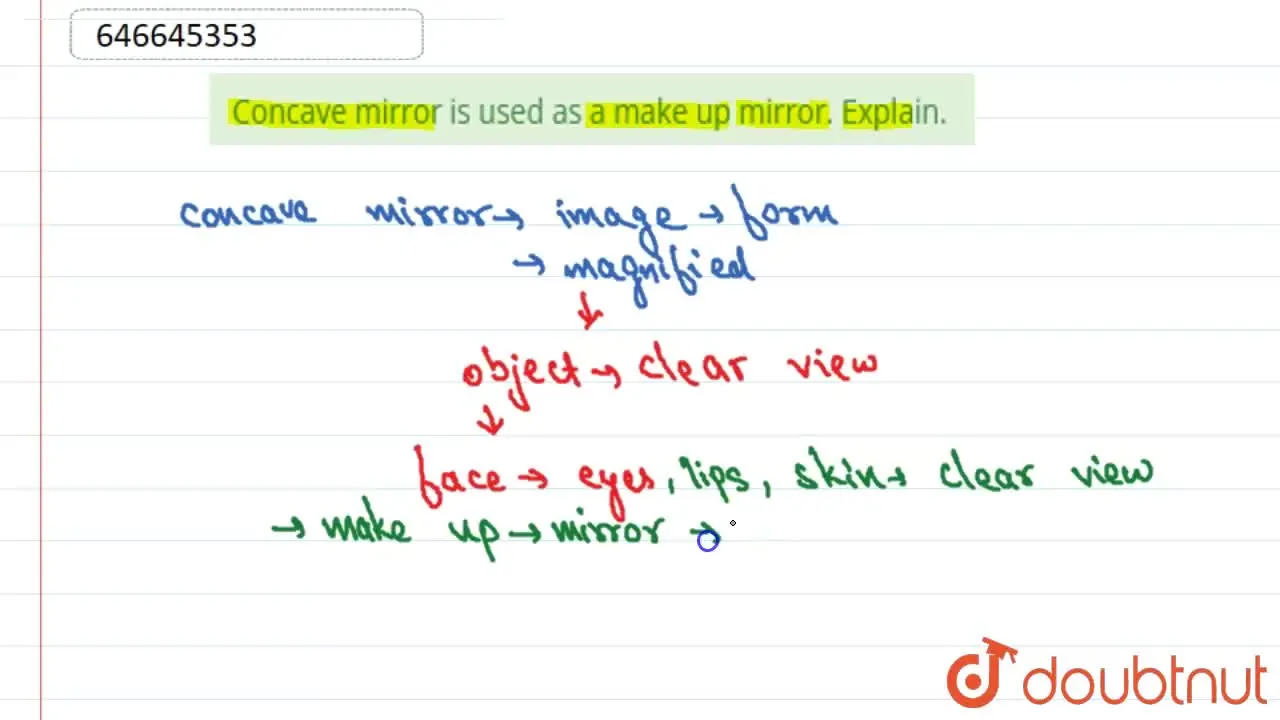 646645353
Concave mirror is used as a make up mirror. Explain.
concave mirror → image → form
→ magnified
↓
object → clear view
↓
face → eyes, lips, skin → clear view
→ make up → mirror →
doubtnut